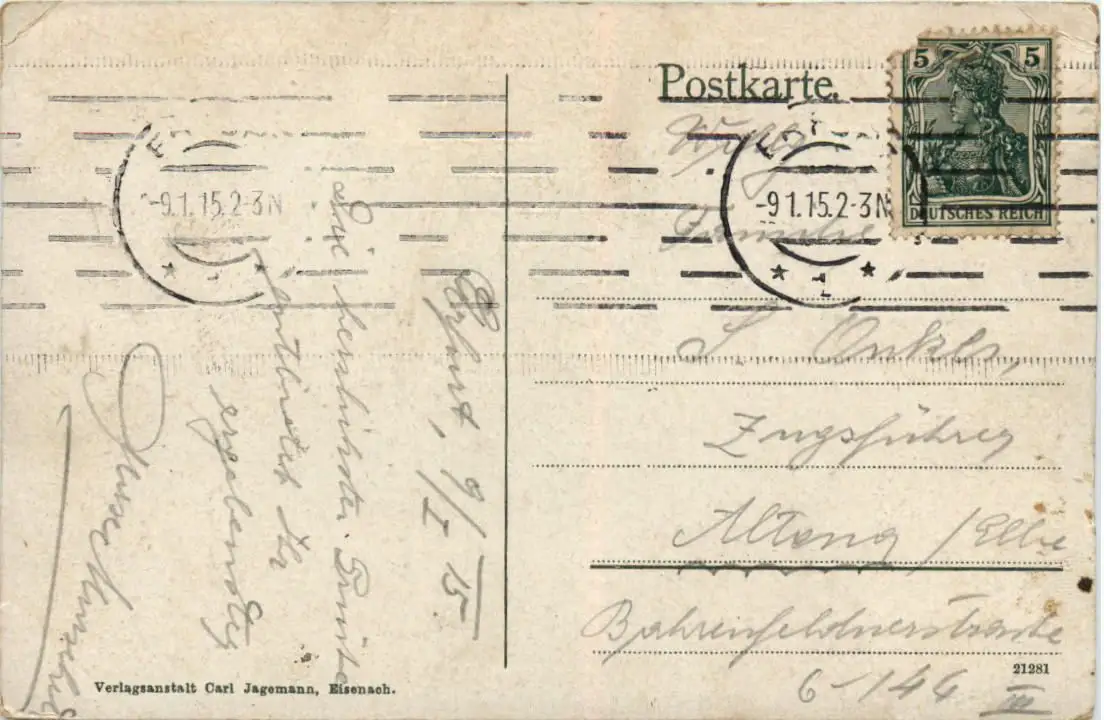 Postkarte.
5 5
DEUTSCHES REICH
-9.1.15.2-3N
-9.1.15.2-3N
* 1 *
* 1 *
Familie
Zugsführer
Altona / Elbe
Bahrenfeldnerstrasse
6-146 III
21281
Erfurt, 9/I 15.
Die herzlichsten Grüsse
entbietet Ihr
ergebenster
Verlagsanstalt Carl Jagemann, Eisenach.